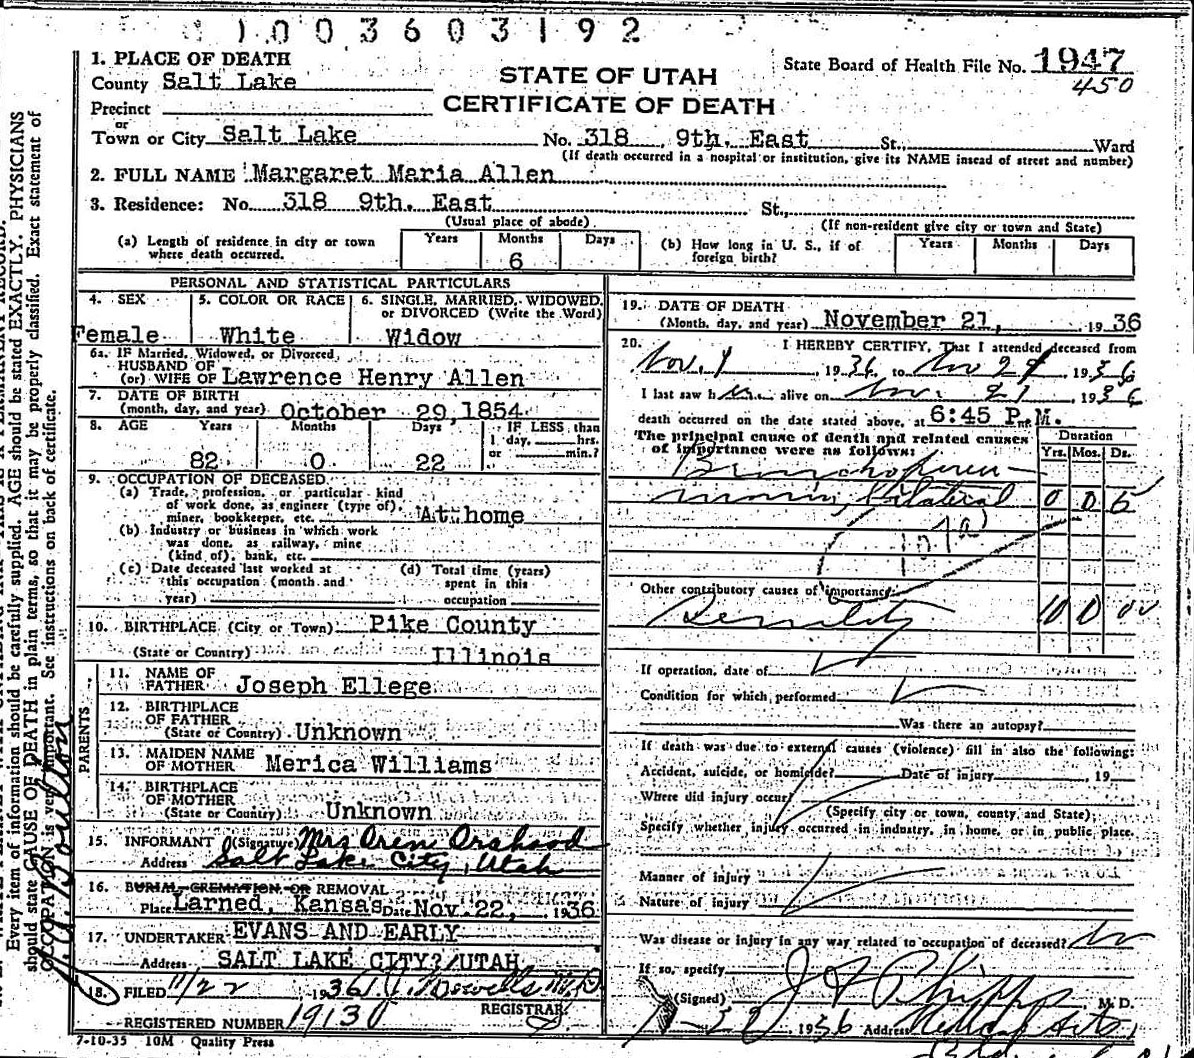 1003603192
1. PLACE OF DEATH
County Salt Lake
STATE OF UTAH
State Board of Health File No. 1947
450
Precinct
CERTIFICATE OF DEATH
or
Town or City Salt Lake No. 318 9th. East St., Ward
(If death occurred in a hospital or institution, give its NAME insead of street and number)
2. FULL NAME Margaret Maria Allen
3. Residence: No. 318 9th. East St.,
(Usual place of abode) (If non-resident give city or town and State)
(a) Length of residence in city or town where death occurred. Years Months 6 Days
(b) How long in U. S., if of foreign birth? Years Months Days
PERSONAL AND STATISTICAL PARTICULARS
4. SEX Female
5. COLOR OR RACE White
6. SINGLE, MARRIED, WIDOWED, or DIVORCED (Write the Word) Widow
6a. IF Married, Widowed, or Divorced
HUSBAND OF
(or) WIFE OF Lawrence Henry Allen
7. DATE OF BIRTH
(month, day, and year) October 29, 1854
8. AGE Years 82 Months 0 Days 22 IF LESS than 1 day, hrs. or min.?
9. OCCUPATION OF DECEASED
(a) Trade, profession, or particular kind
of work done, as engineer (type of),
miner, bookkeeper, etc. At home
(b) Industry or business in which work
was done, as railway, mine
(kind of), bank, etc.
(c) Date deceased last worked at
this occupation (month and
year)
(d) Total time (years)
spent in this
occupation
10. BIRTHPLACE (City or Town) Pike County
(State or Country) Illinois
PARENTS
11. NAME OF
FATHER Joseph Ellege
12. BIRTHPLACE
OF FATHER
(State or Country) Unknown
13. MAIDEN NAME
OF MOTHER Merica Williams
14. BIRTHPLACE
OF MOTHER
(State or Country) Unknown
15. INFORMANT (Signature) Mrs Oren Orahood
Address Salt Lake City, Utah
16. BURIAL, CREMATION, OR REMOVAL
Place Larned, Kansas Date Nov. 22, 1936
17. UNDERTAKER EVANS AND EARLY
Address SALT LAKE CITY?/UTAH
18. FILED 11/22 1936
REGISTRAR
REGISTERED NUMBER 19130
7-10-35 10M Quality Press
19. DATE OF DEATH
(Month, day, and year) November 21, 1936
20. I HEREBY CERTIFY, That I attended deceased from
Nov. 1 1936 to Nov 21 1936
I last saw h alive on Nov. 21 1936
death occurred on the date stated above, at 6:45 P.M.
The principal cause of death and related causes
of importance were as follows:
Duration
Yrs. Mos. Ds.
Bronchopneu-
monia, Bilateral 0 0 5
107a
Other contributory causes of importance:
Senility 10 0 00
If operation, date of
Condition for which performed
Was there an autopsy?
If death was due to external causes (violence) fill in also the following:
Accident, suicide, or homicide? Date of injury , 19
Where did injury occur?
(Specify city or town, county, and State);
Specify whether injury occurred in industry, in home, or in public place.
Manner of injury
Nature of injury
Was disease or injury in any way related to occupation of deceased? No
If so, specify
(Signed) J. F. Phipps M. D.
1936 Address Medical Arts
Every item of information should be carefully supplied. AGE should be stated EXACTLY. PHYSICIANS
should state CAUSE OF DEATH in plain terms, so that it may be properly classified. Exact statement of
OCCUPATION is very important. See instructions on back of certificate.